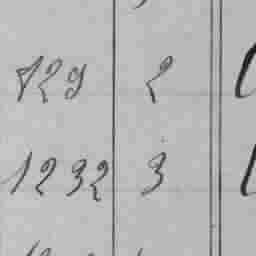 729 2
1232 3